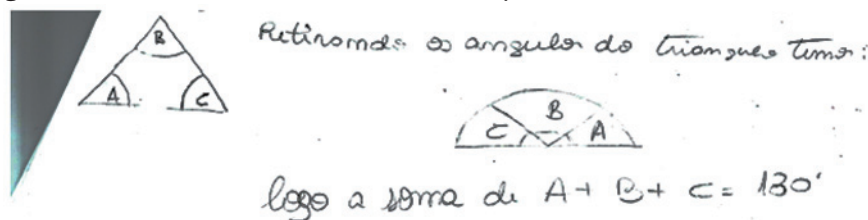 B
A C
Retirando os angulos do triangulo temos:
B
C A
logo a soma de A + B + C = 180°